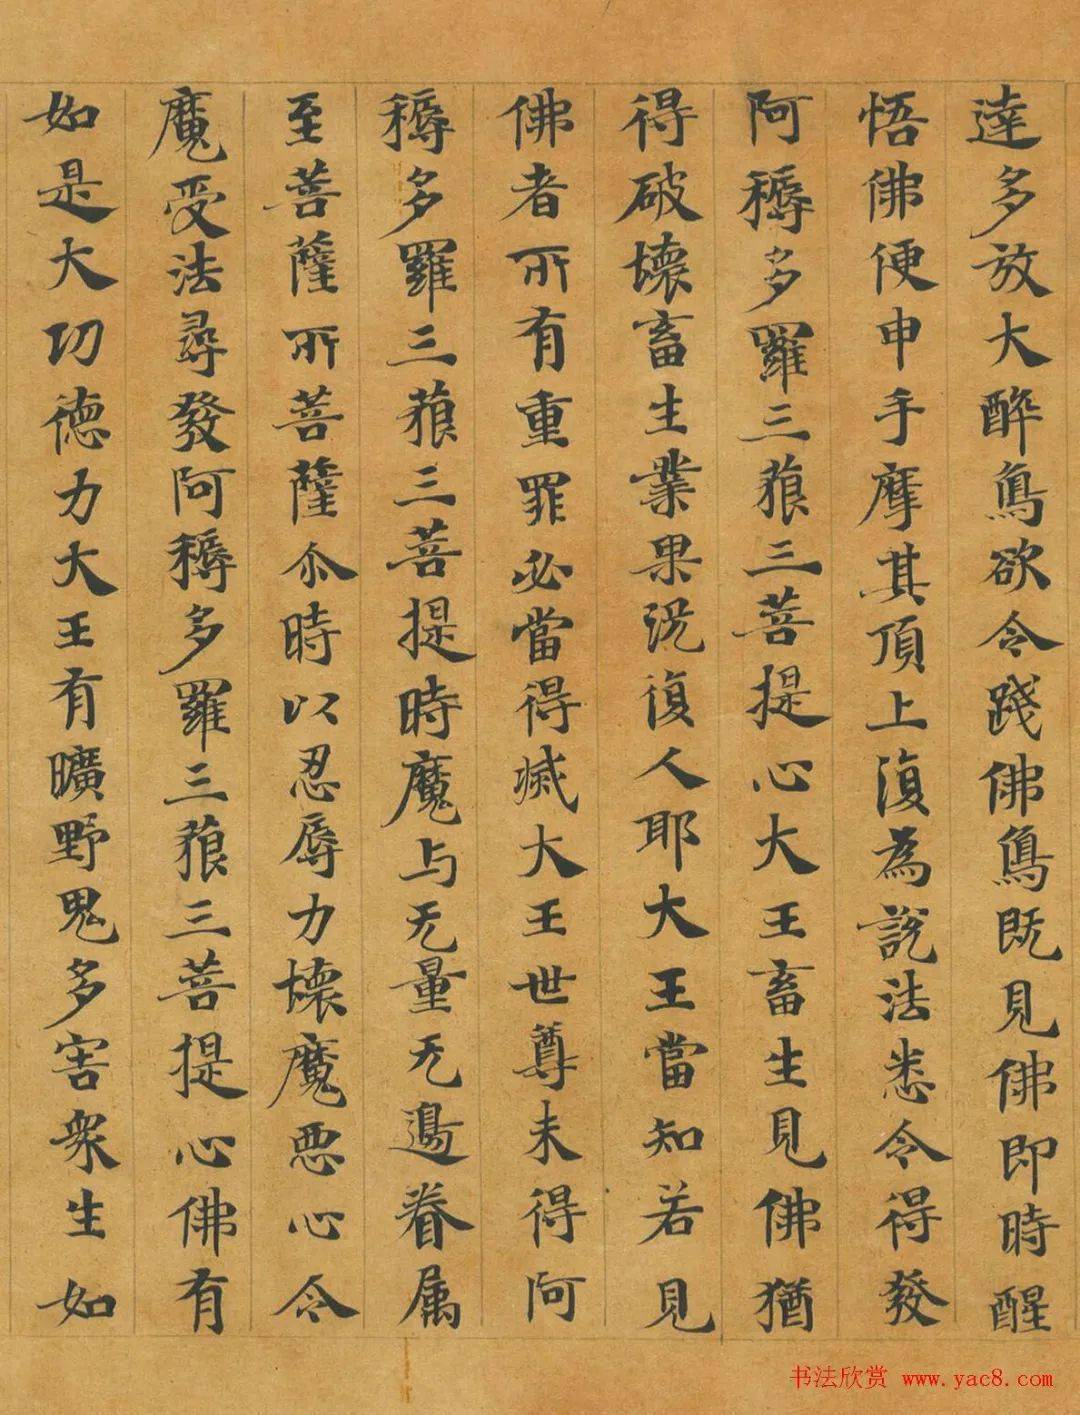 達多放大醉鳥欲令踐佛鳥既見佛即時醒
悟佛便申手摩其頂上復為說法悉令得發
阿耨多羅三藐三菩提心大王畜生見佛猶
得破壞畜生業果況復人耶大王當知若見
佛者所有重罪必當得滅大王世尊未得阿
耨多羅三藐三菩提時魔与无量无邊眷属
至菩薩所菩薩尒時以忍辱力壞魔惡心令
魔受法尋發阿耨多羅三藐三菩提心佛有
如是大功德力大王有曠野鬼多害衆生如
书法欣赏 www.yac8.com